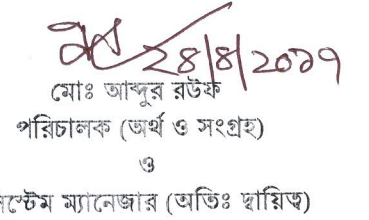 ২৪/৪/২০১৭
মোঃ আব্দুর রউফ
পরিচালক (অর্থ ও সংগ্রহ)
ও
স্টেম ম্যানেজার (অতিঃ দ্বায়িত্ব)